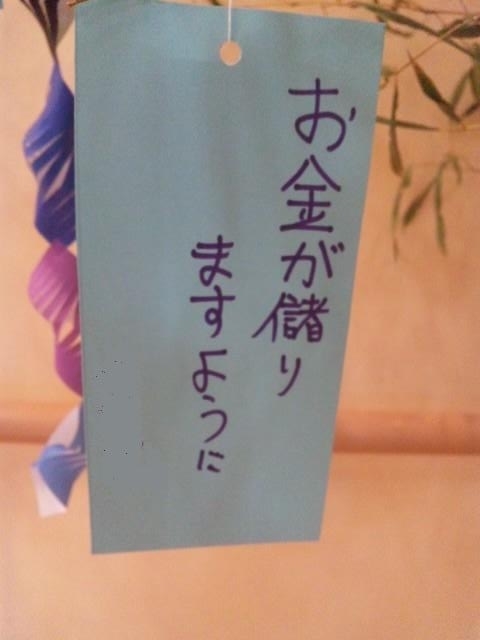 お金が儲り
ますように